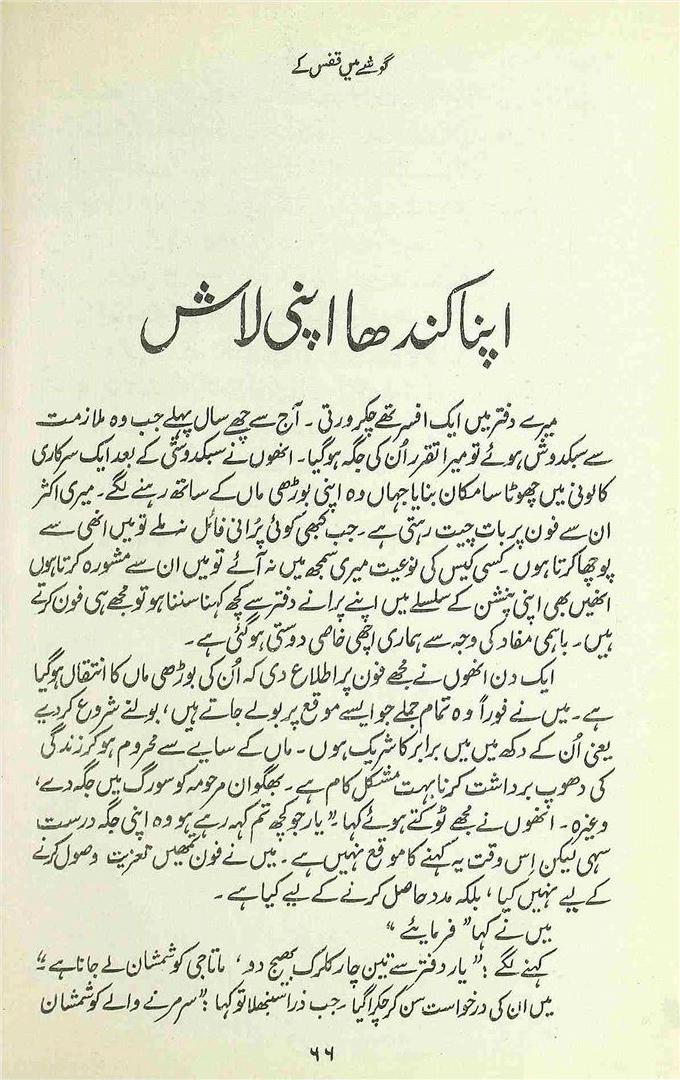 گوشے میں قفس کے
اپنا کندھا اپنی لاش
میرے دفتر میں ایک افسر تھے چکرورتی۔ آج سے چھے سال پہلے جب وہ ملازمت
سے سبکدوش ہوئے تو میرا تقرر اُن کی جگہ ہوگیا۔ انھوں نے سبکدوشی کے بعد ایک سرکاری
کالونی میں چھوٹا سا مکان بنایا جہاں وہ اپنی بوڑھی ماں کے ساتھ رہنے لگے۔ میری اکثر
ان سے فون پر بات چیت رہتی ہے۔ جب کبھی کوئی پُرانی فائل نہ ملے تو میں انھی سے
پوچھا کرتا ہوں۔ کسی کیس کی نوعیت میری سمجھ میں نہ آئے تو میں ان سے مشورہ کرتا ہوں
انھیں بھی اپنی پنشن کے سلسلے میں اپنے پرانے دفتر سے کچھ کہنا سننا ہو تو مجھے ہی فون کرتے
ہیں۔ باہمی مفاد کی وجہ سے ہماری اچھی خاصی دوستی ہوگئی ہے۔
ایک دن انھوں نے مجھے فون پر اطلاع دی کہ اُن کی بوڑھی ماں کا انتقال ہوگیا
ہے۔ میں نے فوراً وہ تمام جملے جو ایسے موقع پر بولے جاتے ہیں، بولنے شروع کردیے
یعنی اُن کے دکھ میں میں برابر کا شریک ہوں۔ ماں کے سایے سے محروم ہوکر زندگی
کی دھوپ برداشت کرنا بہت مشکل کام ہے۔ بھگوان مرحومہ کو سورگ میں جگہ دے،
وغیرہ۔ انھوں نے مجھے ٹوکتے ہوئے کہا۔ ”یار جو کچھ تم کہہ رہے ہو وہ اپنی جگہ درست
سہی لیکن اِس وقت یہ کہنے کا موقع نہیں ہے۔ میں نے فون تمھیں تعزیت وصول کرنے
کے لیے نہیں کیا، بلکہ مدد حاصل کرنے کے لیے کیا ہے۔
میں نے کہا ”فرمایئے“
کہنے لگے: ”یار دفتر سے تین چار کلرک بھیج دو، ماتاجی کو شمشان لے جانا ہے۔“
میں ان کی درخواست سن کر چکرا گیا۔ جب ذرا سنبھلا تو کہا: ”سر مرنے والے کو شمشان
۶۶